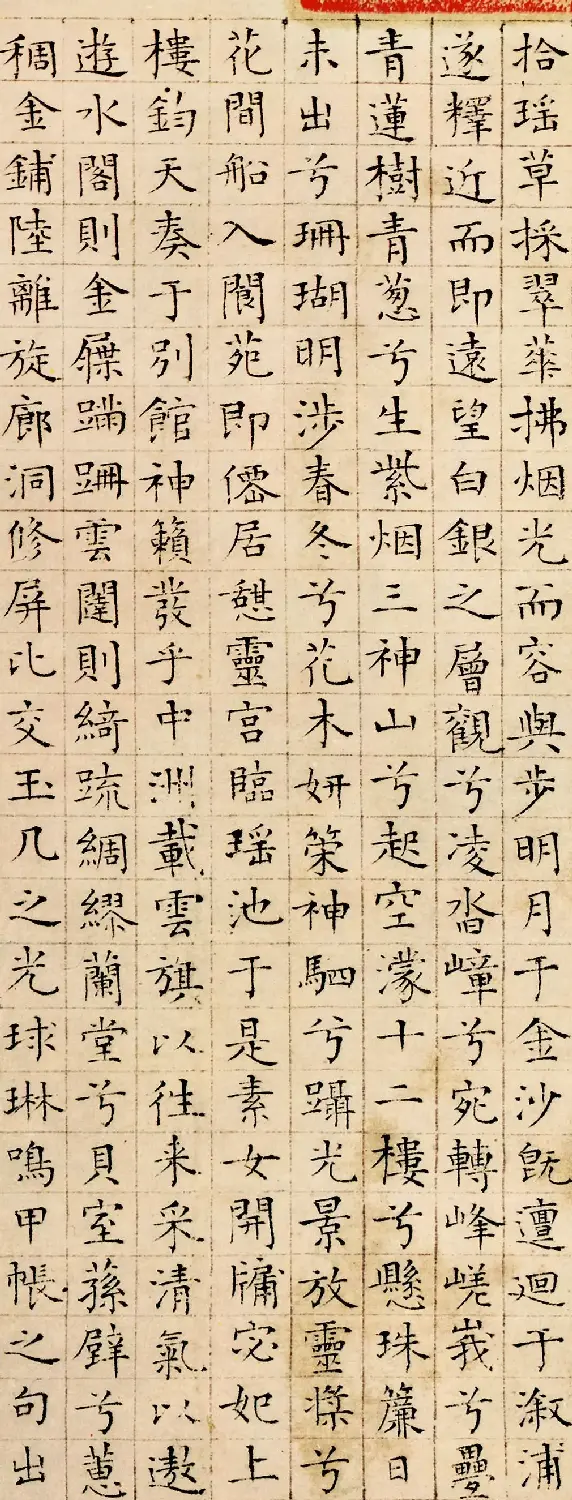 拾瑶草採翠華拂烟光而容與步明月于金沙旣邅迴于漵浦
遂釋近而即遠望白銀之層觀兮凌沓嶂兮宛轉峰嵯峩兮疊
青蓮樹青葱兮生紫烟三神山兮起空濛十二樓兮懸珠簾日
未出兮珊瑚明涉春冬兮花木妍策神駟兮躡光景放靈槳兮
花間船入閬苑即僊居憩靈宫臨瑶池于是素女開牖宓妃上
樓鈞天奏于別館神籟發乎中洲載雲旗以往来采清氣以遨
遊水閣則金屧蹣跚雲闥則綺疏綢繆蘭堂兮貝室蓀壁兮蕙
稠金鋪陸離旋廊洞修屏比交玉几之光球琳鳴甲帳之句出